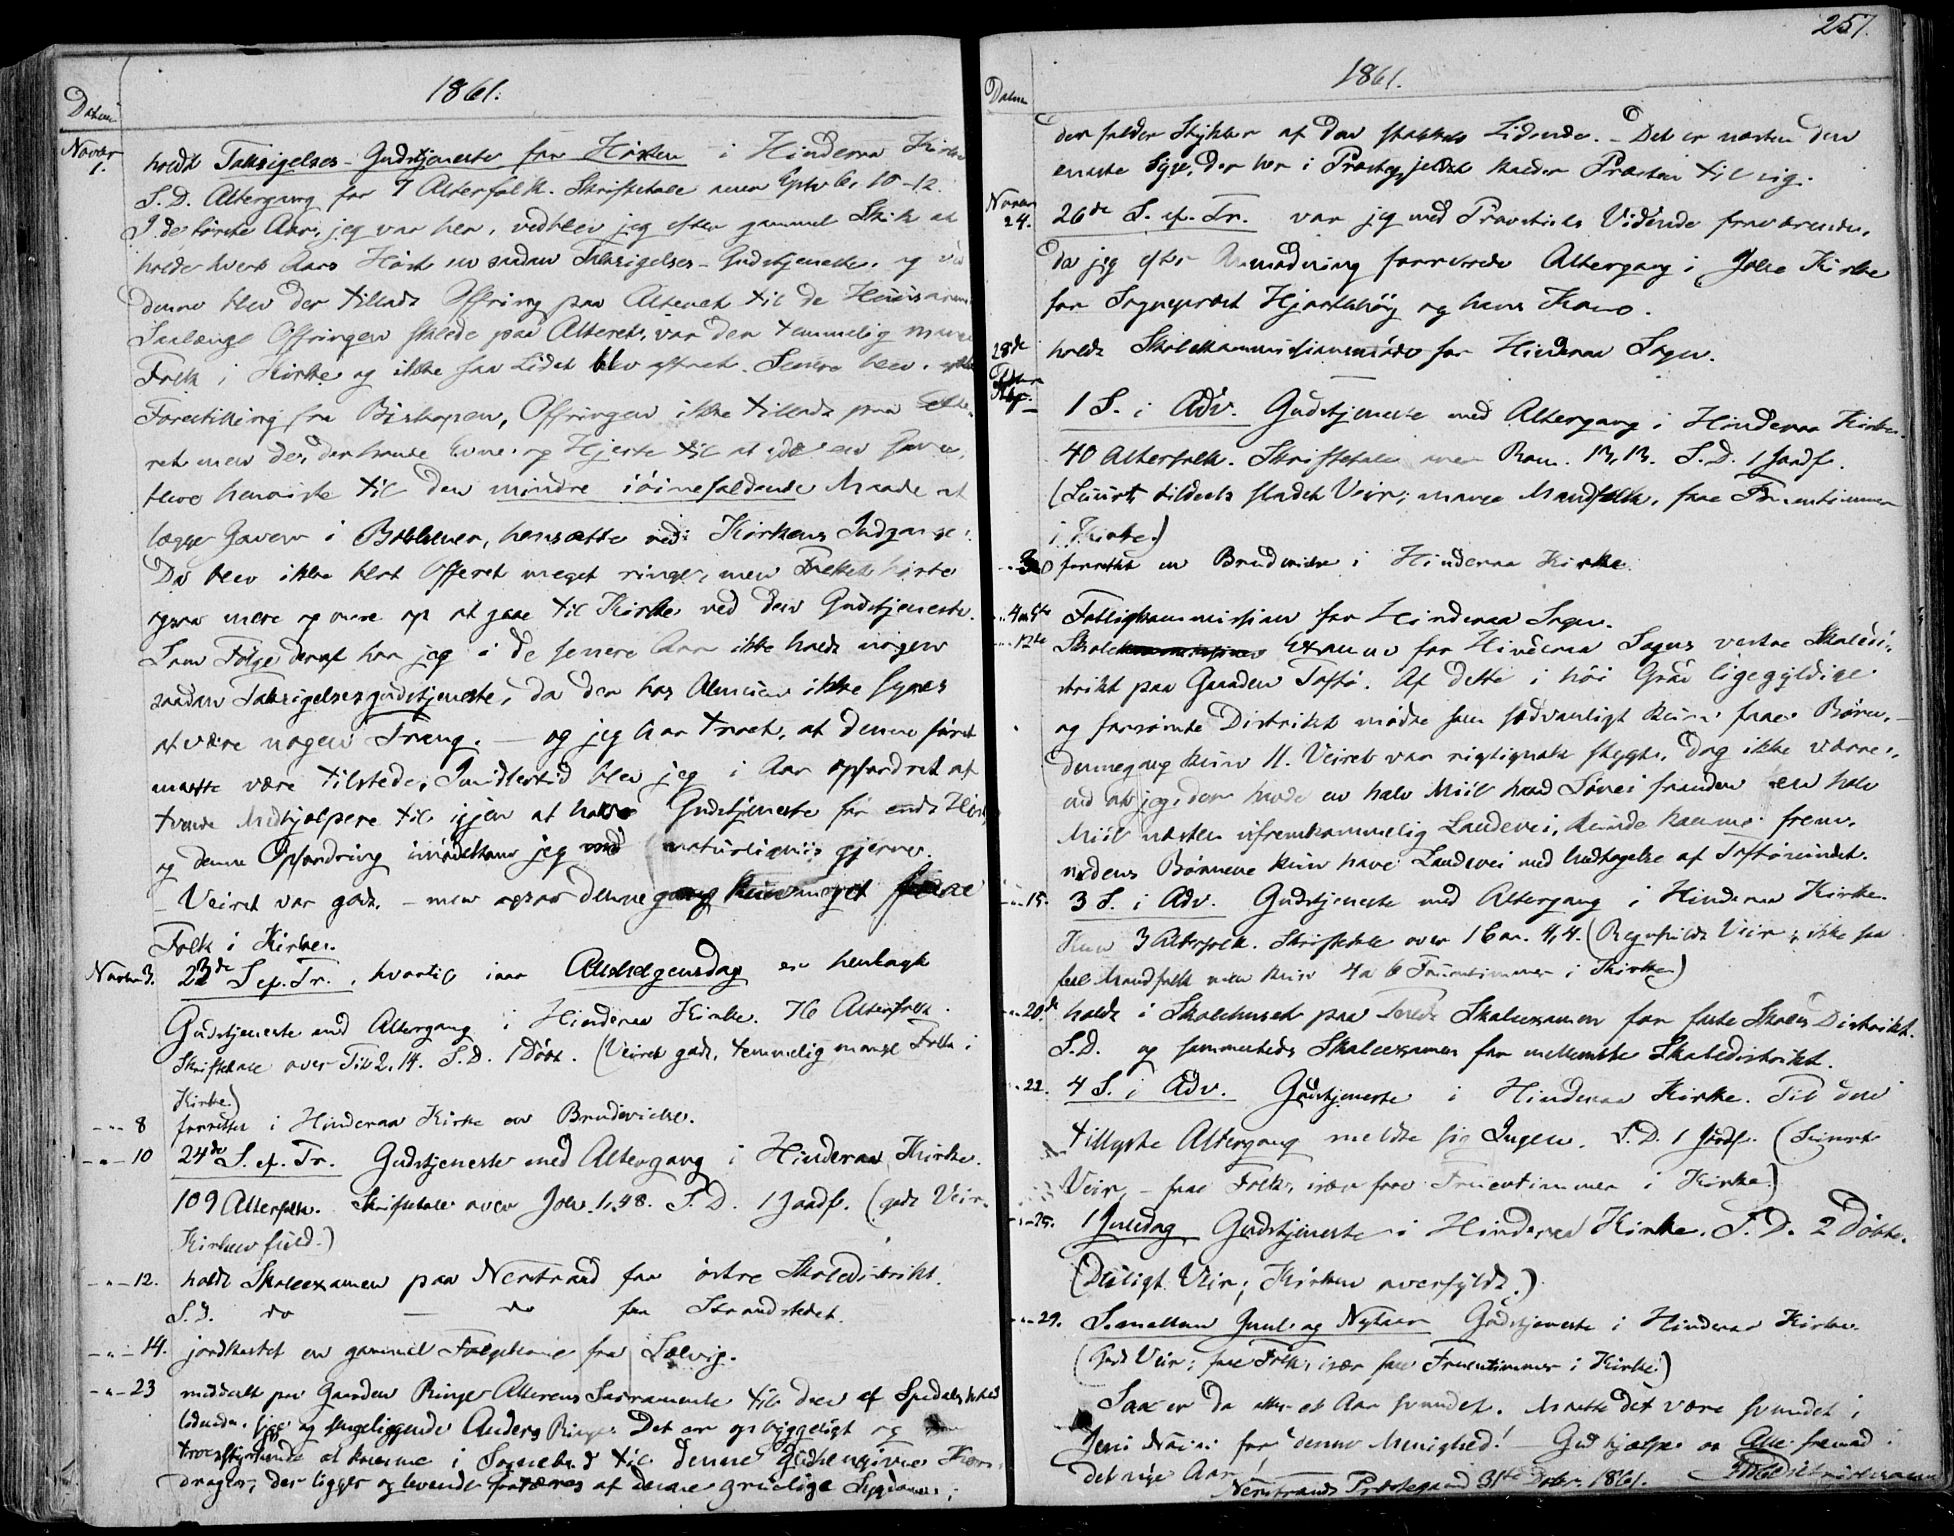 1861.
Datum
Novbr 1.
holdt Taksigelses-Gudstjeneste for Høsten i Hinderaa Kirke
S.D. Altergang for 7 Alterfolk. Skriftetale over 10-12.
I de første Aar, jeg var her, vedblev jeg efter gammel Skik at
holde hvert Aars Høst en saadan Taksigelses-Gudstjeneste, og ved
denne blev der tilladt Offring paa Alteret til de Huusarme
Saalænge Offringen skede paa Alteret, var der temmelig mange
Folk i Kirke og ikke saa Lidet blev offret. Senere blev, efter
Forestilling fra Biskopen, Offringen ikke tilladt paa Alte-
ret men de, der havde Evne og Hjerte til at yde en Gave,
bleve henviste til den mindre iøinefaldende Maade at
lægge Gaven i Bøkkener, hensatte ved Kirkens Indgange.
Da blev ikke blot Offeret meget ringe, men Folket hørte
ogsaa mere og mere op at gaae til Kirke ved den Gudstjeneste.
Som Følge deraf har jeg i de senere Aar ikke holdt nogen
saadan Taksigelsesgudstjeneste, da der hos Almuen ikke synes
at være nogen Trang. — og jeg har troet, at denne først
maatte være tilstede. Imidlertid blev jeg i Aar opfordret af
tvende Medhjælpere til igjen at holde Gudstjeneste for endt Høst,
og denne Opfordring imødekom jeg naturligviis gjerne.
Veiret var godt, - men ogsaa dennegang kun meget faae
Folk i Kirke.
Novbr 3. 23de S. ef. Tr., hvortil iaar Allehelgensdag er henlagt
Gudstjeneste med Altergang i Hinderaa Kirke. 76 Alterfolk.
Skriftetale over Tit. 2, 14. S.D. 1 Døbt. (Veiret godt, temmelig mange Folk i
Kirke.)
- " - 8 forrettet i Hinderaa Kirke en Brudevielse.
- " - 10 24de S. ef. Tr. Gudstjeneste med Altergang i Hinderaa Kirke.
109 Alterfolk. Skriftetale over Joh. 1, 48. S.D. 1 Jordf. (godt Veir.
Kirken fuld.)
- " - 12. holdt Skoleexamen paa Nerstrand for østre Skoledistrikt.
S.D. do — do for Strandstedet.
- " - 14. jordkastet en gammel Følgekone fra
- " - 23 meddeelt paa Gaarden Ringe Alterens Sacramente til den af Spedalskhed
lidende, syge og sengeliggende Anders Ringe. Det er opbyggeligt og
troesstyrkende at komme i Sognebud til denne Gudhengivne Kors-
drager, der ligger og levende fortæres af denne gruelige Sygdom;
257.
1861.
Datum
der falder Stykker af den stakkels Lidende. - Det er næsten den
eneste Syge, der her i Præstegjeldet kalder Præsten til sig.
Novbr 24. 26de S. ef. Tr. var jeg med Provstens Vidende fraværende,
da jeg efter Anmodning forrettede Altergang i Jelse Kirke
for Sognepræst Hjorthhøy og hans Kone.
28de holdt Skolekommissionsmøde for Hinderaa Sogn.
1 S. i Adv. Gudstjeneste med Altergang i Hinderaa Kirke.
40 Alterfolk. Skriftetale over Rom. 13, 13. S.D. 1 Jordf.
(Suurt tildeels sludet Veir; mange Mandfolk, faae Fruentimmer
i Kirke.)
forrettet en Brudevielse i Hinderaa Kirke.
Fattigkommission for Hinderaa Sogn.
- 12te Skole Examen for Hinderaa Sogns vestre Skoledi-
strikt paa Gaarden Toftø. Af dette i høi Grad ligegyldige
og forsømte Distrikt mødte som sædvanligt kun faae Børn, -
dennegang kun 11. Veiret var rigtignok stygt, dog ikke værre,
end at jeg, der havde en halv Miil haard Søvei foruden en halv
Miil næsten ufremkommelig Landevei, kunde komme frem,
medens Børnene kun have Landevei med Undtagelse af Toftøsundet.
- " - 15. 3 S. i Adv. Gudstjeneste med Altergang i Hinderaa Kirke.
Kun 3 Alterfolk. Skriftetale over 1 Cor. 4, 4. (Regnfuldt Veir; ikke saa
faae Mandfolk men kun 4 a 6 Fruentimmer i Kirke)
- " - 20de holdt i Skolehuset paa Skoleexamen for faste Skoles Distrikt.
S.D. og sammesteds Skoleexamen for mellemste Skoledistrikt.
- " 22. 4 S. i Adv. Gudstjeneste i Hinderaa Kirke. Til den
tillyste Altergang meldte sig Ingen. S.D. 1 Jordf. (Suurt
Veir, - faae Folk, især faae Fruentimmer i Kirke.)
- " - 25. 1 Juledag Gudstjeneste i Hinderaa Kirke. S.D. 2 Døbte.
(Deiligt Veir; Kirken overfyldt.)
- " - 29. S. mellem Juul og Nytaar Gudstjeneste i Hinderaa Kirke.
(Godt Veir; faae Folk, især faae Fruentimmer i Kirke)
Saa er da atter et Aar svundet. Maatte det være svundet i
Jesu Navn for denne Menighed! Gud hjælpe os Alle fremad i
det nye Aar!
Nerstrands Præstegaard 31te Decbr. 1861.